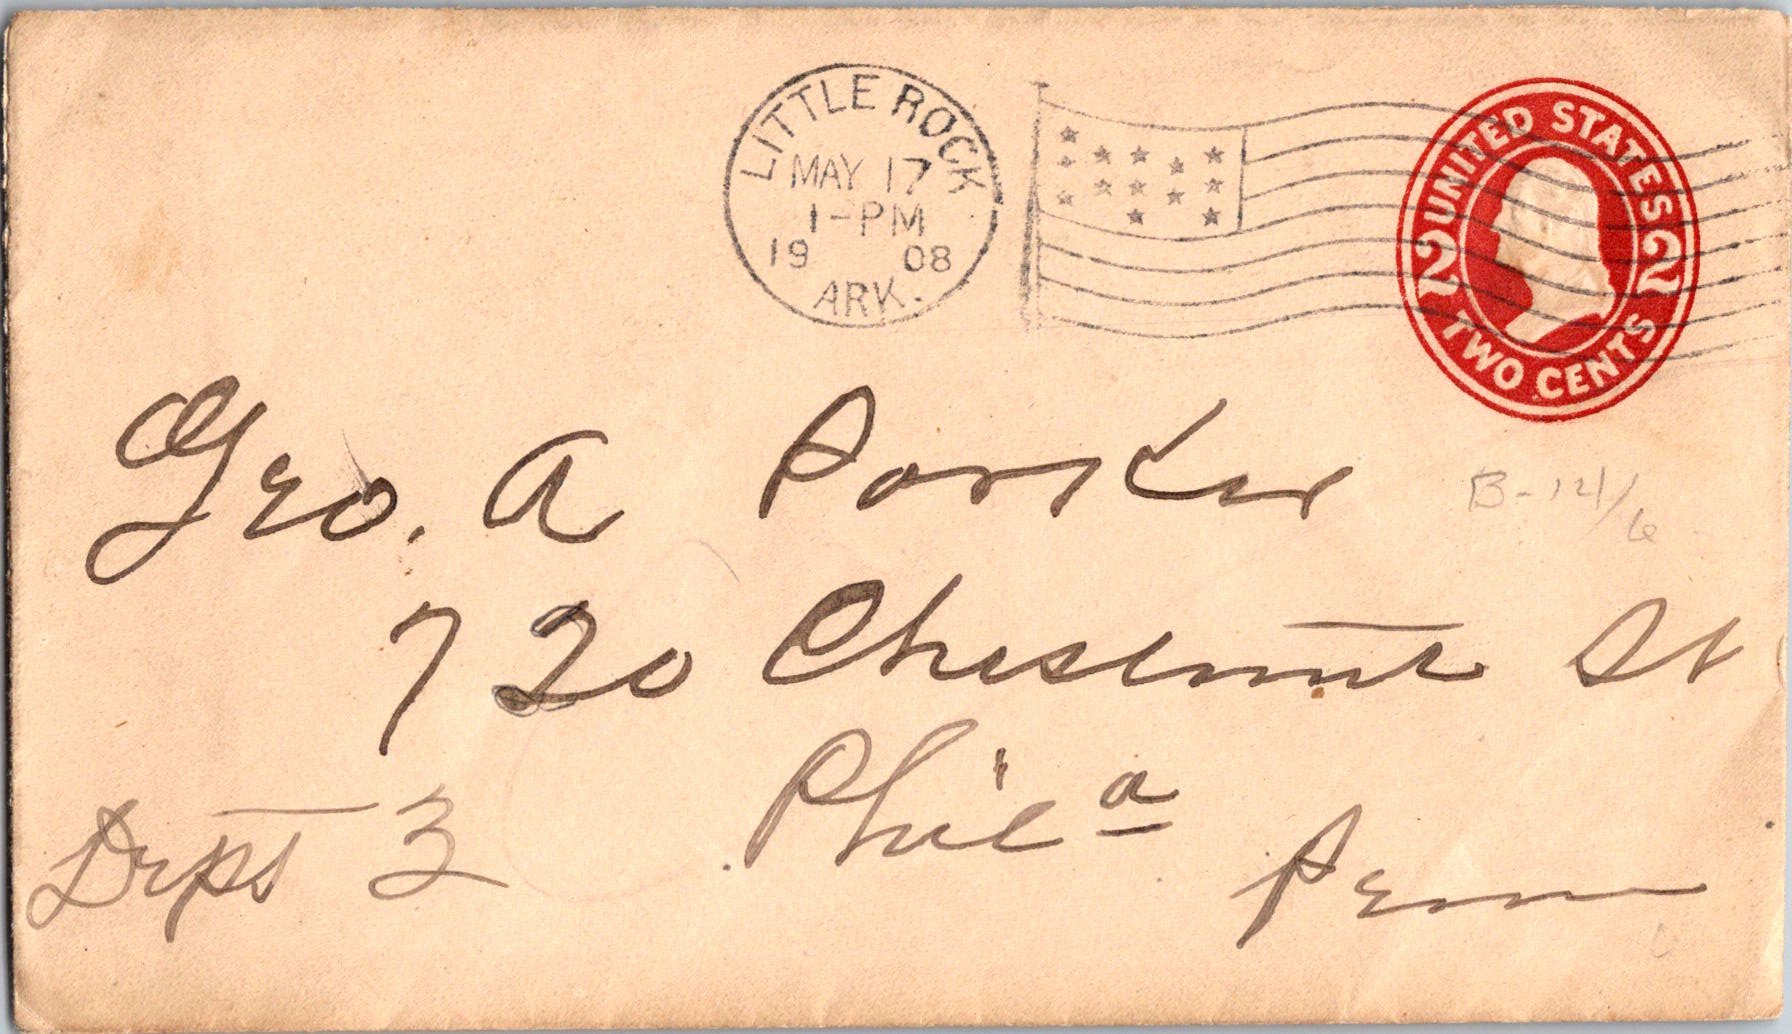 LITTLE ROCK
MAY 17
1-PM
19 08
ARK.
UNITED STATES
2 2
TWO CENTS
Geo. A Parker
B-14/6
720 Chestnut St
Phil'a
Dept 3
Penn